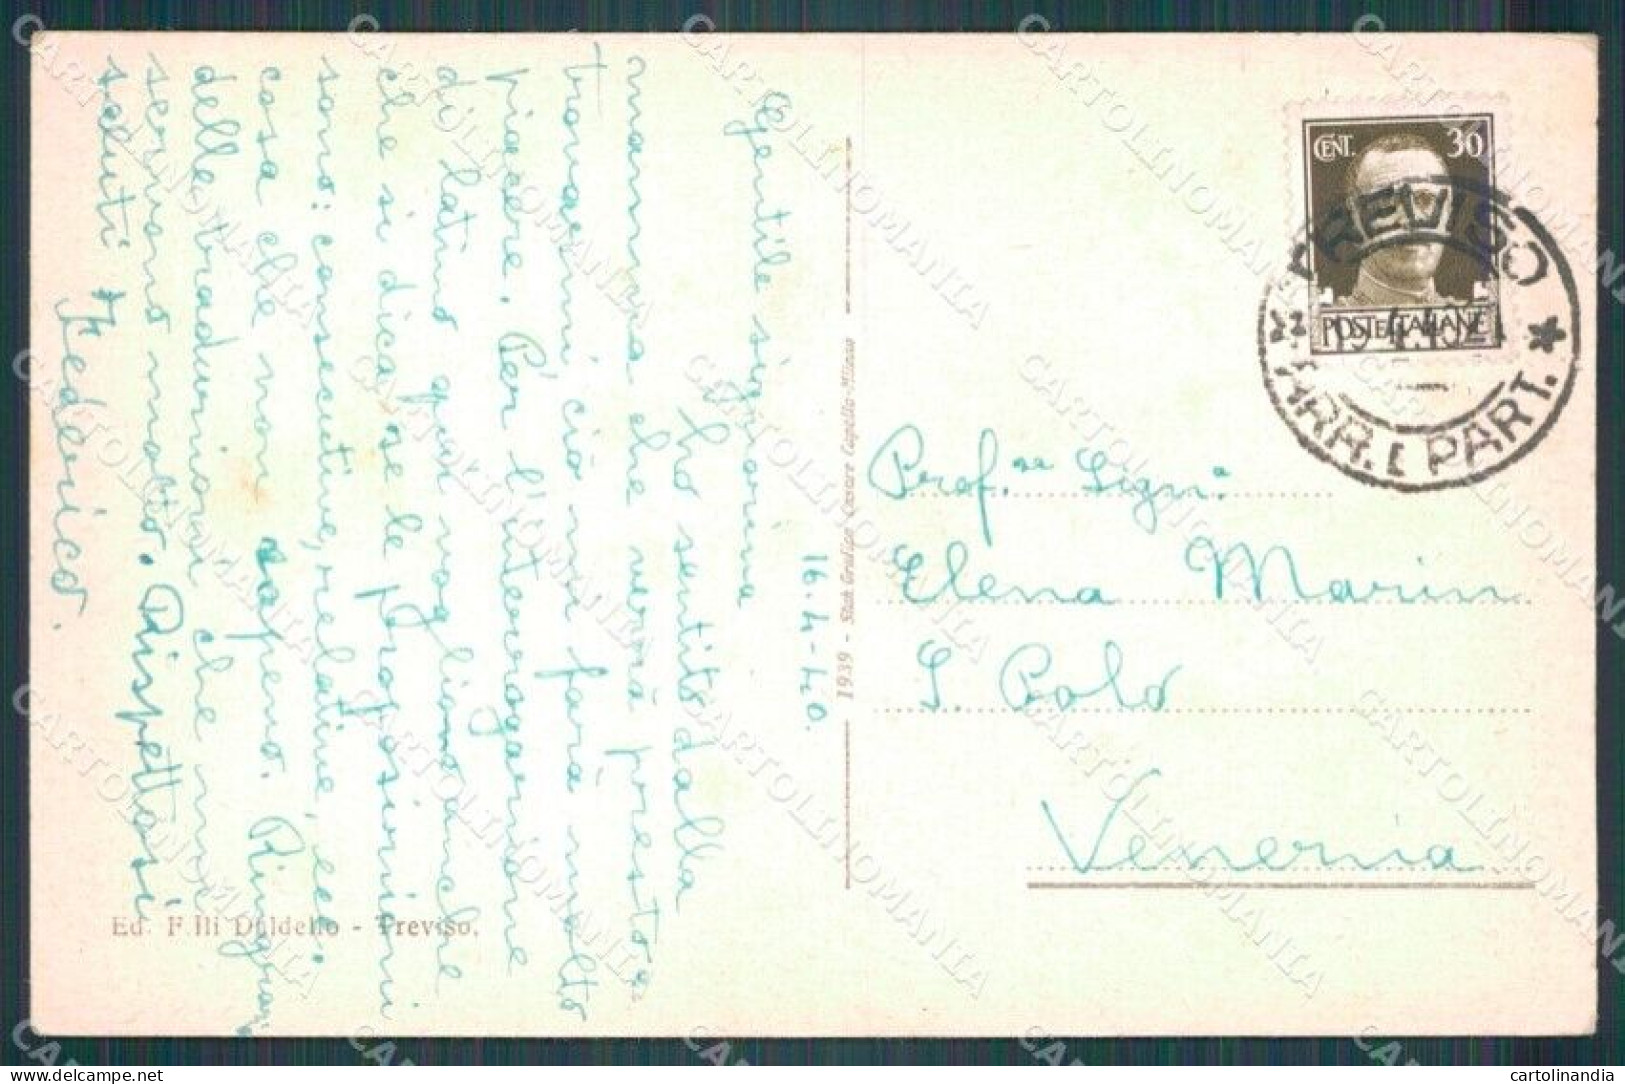 16-4-40.
Gentile signorina
ho sentito dalla
mamma che verrà presto a
trovarmi ciò mi farà molto
piacere. Per l'interrogazione
di latino quì vogliono anche
che si dica se le proposizioni
sono: consecutive, relative, ecc;
cosa che non sapevo. Ringrazio
delle traduzioni che mi
servono molto. Rispettosi
saluti Federico.
1939 - Stab. Grafico Cesare Capello-Milano
Ed. F.lli Daldello - Treviso.
CENT. 30
POSTE ITALIANE
TREVISO
19.4.40
ARR. E PART.
Prof. Sign.a
Elena Marin
S. Polo
Venezia
CARTOLINOMANIA
cartolinandia